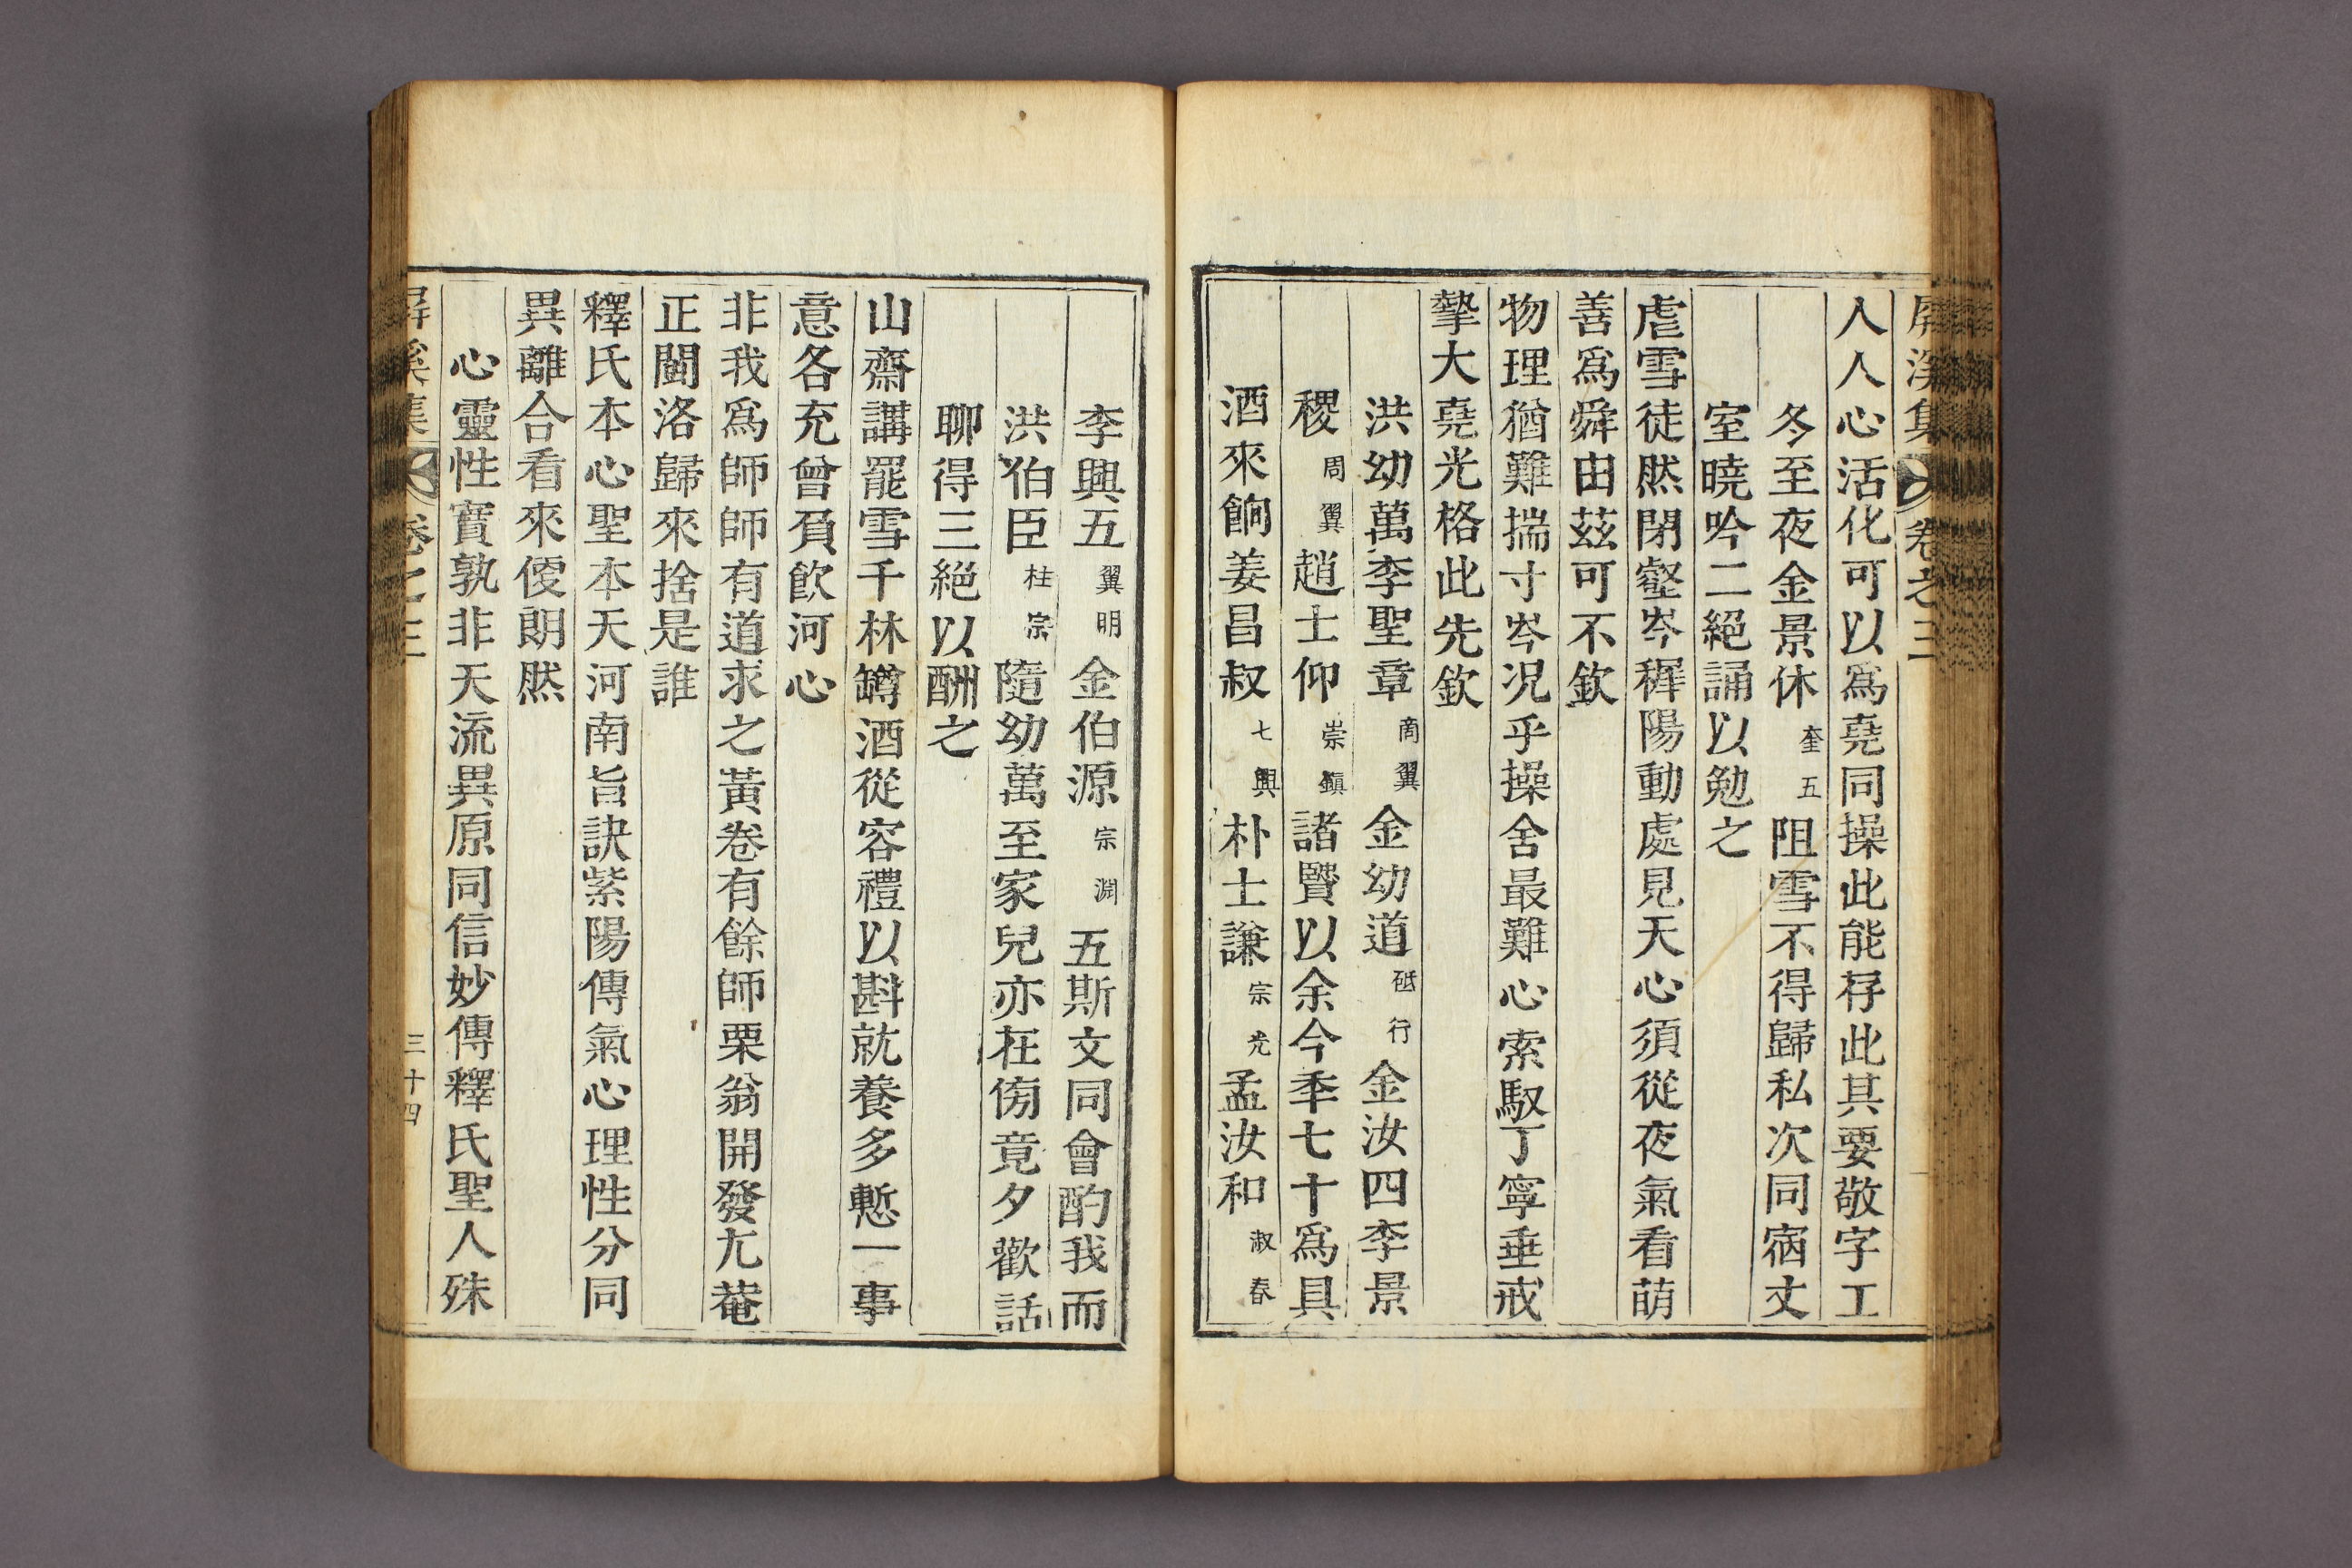 屏溪集 卷之三
人人心活化可以爲堯同操此能存此其要敬字工
冬至夜金景休奎五阻雪不得歸私次同宿丈
室曉吟二絕誦以勉之
虐雪徒然閉壑岑穉陽動處見天心須從夜氣看萌
善爲舜由茲可不欽
物理猶難揣寸岑況乎操舍最難心索馭丁寧垂戒
摯大堯光格此先欽
洪幼萬李聖章商翼金幼道砥行金汝四李景
稷周翼趙士仰崇鎭諸賢以余今年七十爲具
酒來餉姜昌叔七興朴士謙宗光孟汝和淑春
李興五翼明金伯源宗淵五斯文同會酌我而
洪伯臣柱宗隨幼萬至家兒亦在傍竟夕歡話
聊得三絕以酬之
山齋講罷雪千林罇酒從容禮以斟就養多慙一事
意各充曾負飮河心
非我爲師師有道求之黃卷有餘師栗翁開發尤菴
正閩洛歸來捨是誰
釋氏本心聖本天河南旨訣紫陽傳氣心理性分同
異離合看來便朗然
心靈性實孰非天流異原同信妙傳釋氏聖人殊
屏溪集 卷之三 三十四